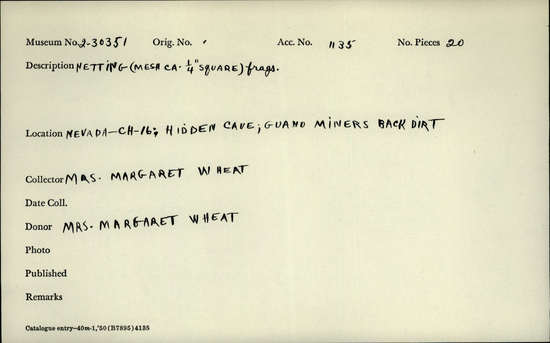 Museum No. 2-30351 Orig. No. Acc. No. 1135 No. Pieces 20
Description NETTING (MESH CA. 1/4" SQUARE) frags.
Location NEVADA-CH-16; HIDDEN CAVE; GUANO MINERS BACK DIRT
Collector MRS. MARGARET WHEAT
Date Coll.
Donor MRS. MARGARET WHEAT
Photo
Published
Remarks
Catalogue entry—40m-1,'50 (B7895) 4135